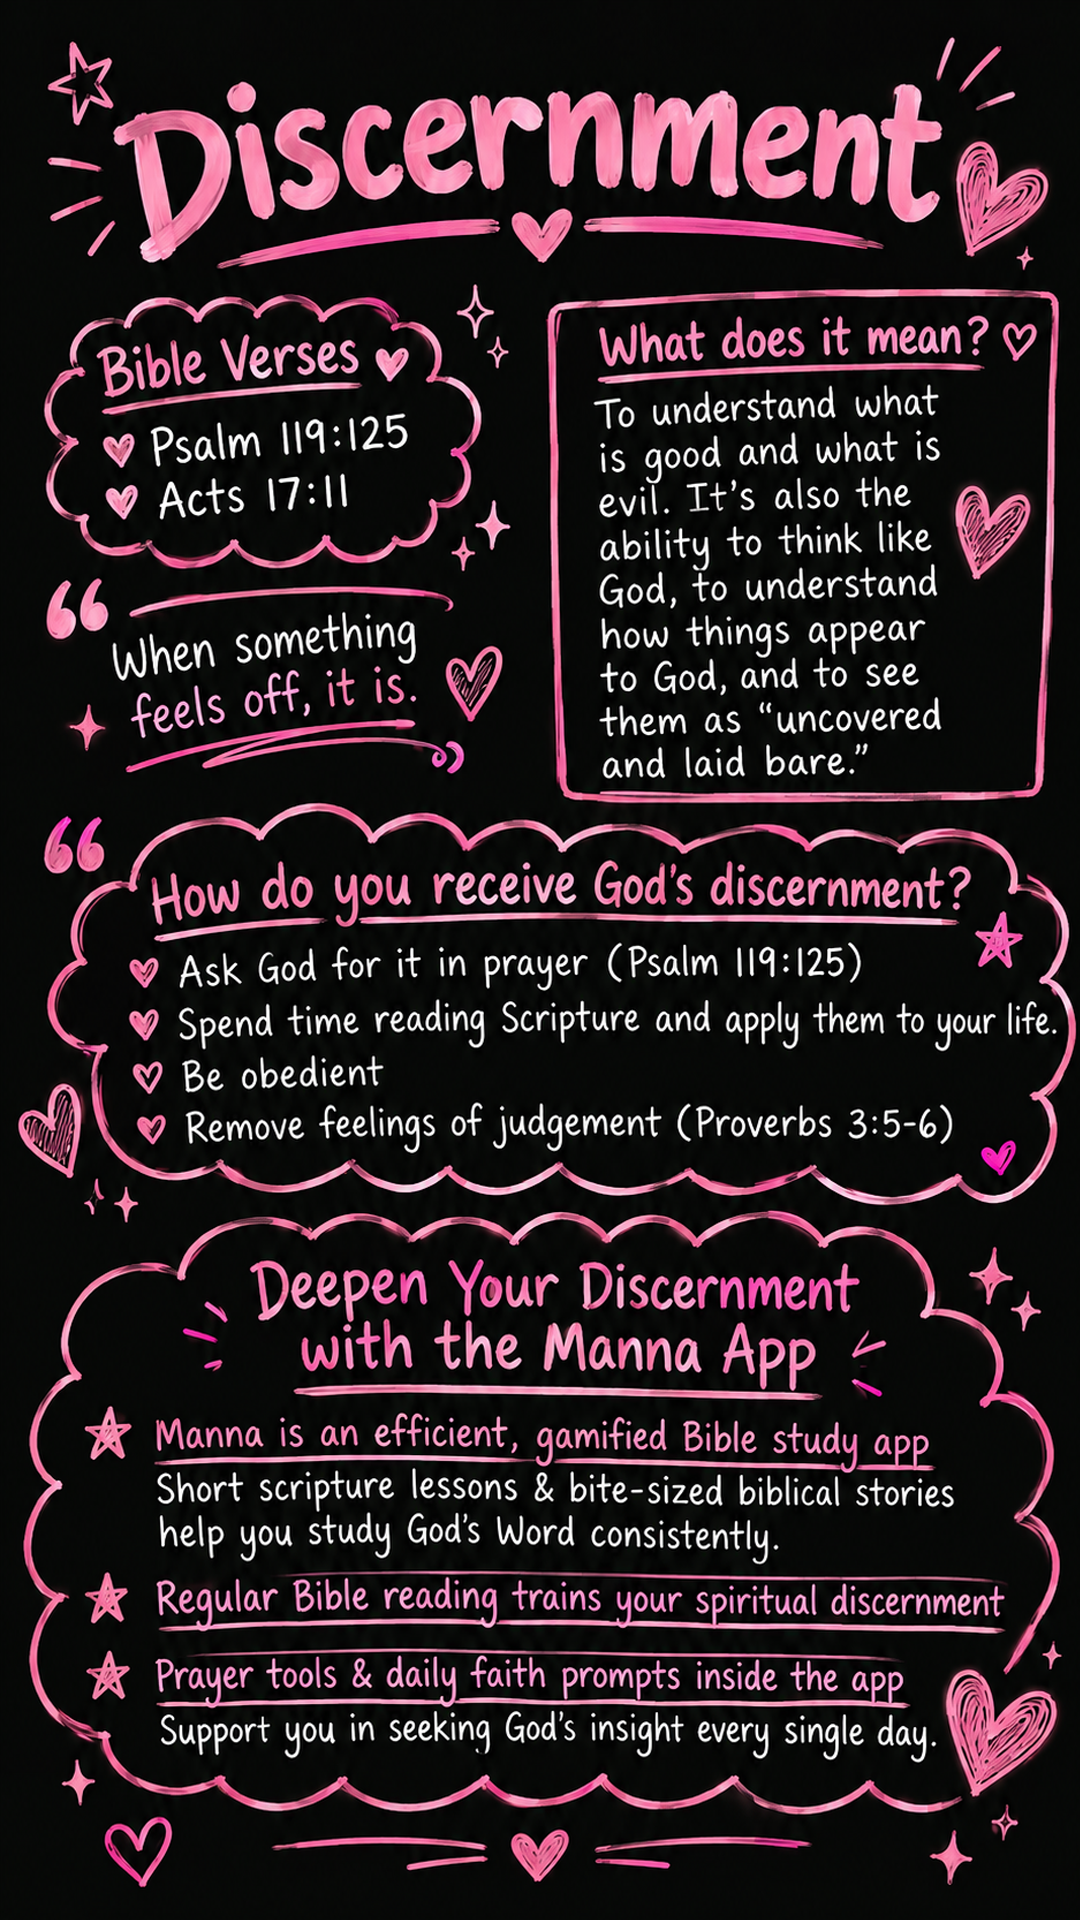 Discernment
Bible Verses
Psalm 119:125
Acts 17:11
What does it mean?
To understand what
is good and what is
evil. It's also the
ability to think like
God, to understand
how things appear
to God, and to see
them as “uncovered
and laid bare.”
“When something
feels off, it is.”
“How do you receive God's discernment?
Ask God for it in prayer (Psalm 119:125)
Spend time reading Scripture and apply them to your life.
Be obedient
Remove feelings of judgement (Proverbs 3:5-6)
Deepen Your Discernment
with the Manna App
Manna is an efficient, gamified Bible study app
Short scripture lessons & bite-sized biblical stories
help you study God's Word consistently.
Regular Bible reading trains your spiritual discernment
Prayer tools & daily faith prompts inside the app
Support you in seeking God's insight every single day.